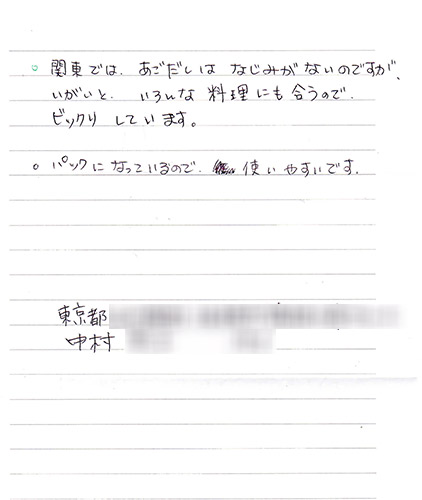 ○ 関東では、あごだしは なじみがないのですが、
いがいと、いろんな 料理にも合うので、
ビックリ しています。
○ パックに なっているので、使いやすいです。
東京都
中村